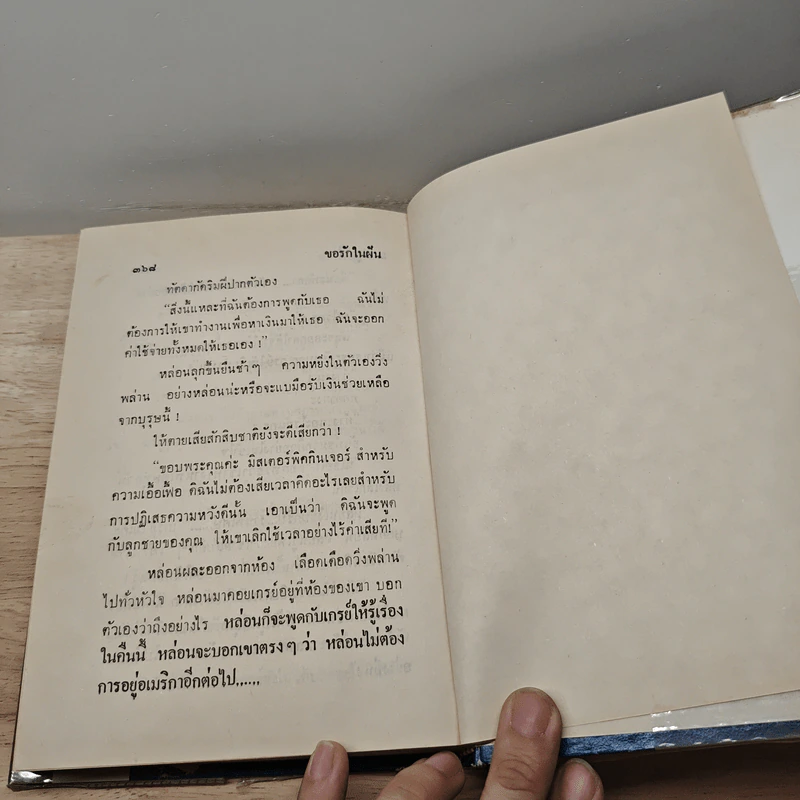 ๓๖๘ ขอรักในฝัน
ทัดดากัดริมฝีปากตัวเอง
“สิ่งนี้แหละที่ฉันต้องการพูดกับเธอ ฉันไม่
ต้องการให้เขาทำงานเพื่อหาเงินมาให้เธอ ฉันจะออก
ค่าใช้จ่ายทั้งหมดให้เธอเอง !”
หล่อนลุกขึ้นยืนช้าๆ ความหยิ่งในตัวเองวิ่ง
พล่าน อย่างหล่อนน่ะหรือจะแบมือรับเงินช่วยเหลือ
จากบุรุษนี้ !
ให้ตายเสียสักสิบชาติยังจะดีเสียกว่า !
“ขอบพระคุณค่ะ มิสเตอร์พิคกินเจอร์ สำหรับ
ความเอื้อเฟื้อ ดิฉันไม่ต้องเสียเวลาคิดอะไรเลยสำหรับ
การปฏิเสธความหวังดีนั้น เอาเป็นว่า ดิฉันจะพูด
กับลูกชายของคุณ ให้เขาเลิกใช้เวลาอย่างไร้ค่าเสียที!”
หล่อนผละออกจากห้อง เลือดเดือดวิ่งพล่าน
ไปทั่วหัวใจ หล่อนมาคอยเกรย์อยู่ที่ห้องของเขา บอก
ตัวเองว่าถึงอย่างไร หล่อนก็จะพูดกับเกรย์ให้รู้เรื่อง
ในคืนนี้ หล่อนจะบอกเขาตรงๆ ว่า หล่อนไม่ต้อง
การอยู่อเมริกาอีกต่อไป......